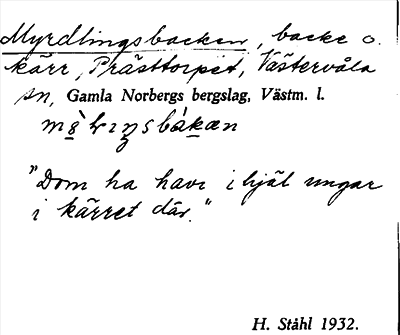 Myrdlingsbacken, backe o.
kärr, Prästtorpet, Västervåla
sn, Gamla Norbergs bergslag, Västm. l.
"Dom ha havt ihjäl ungar
i kärret där."
H. Ståhl 1932.